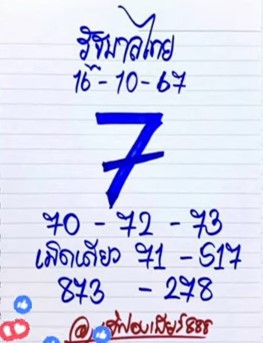 รัฐบาลไทย
16-10-67
7
70 - 72 - 73
เม็ดเดียว 71 - 517
873 - 278